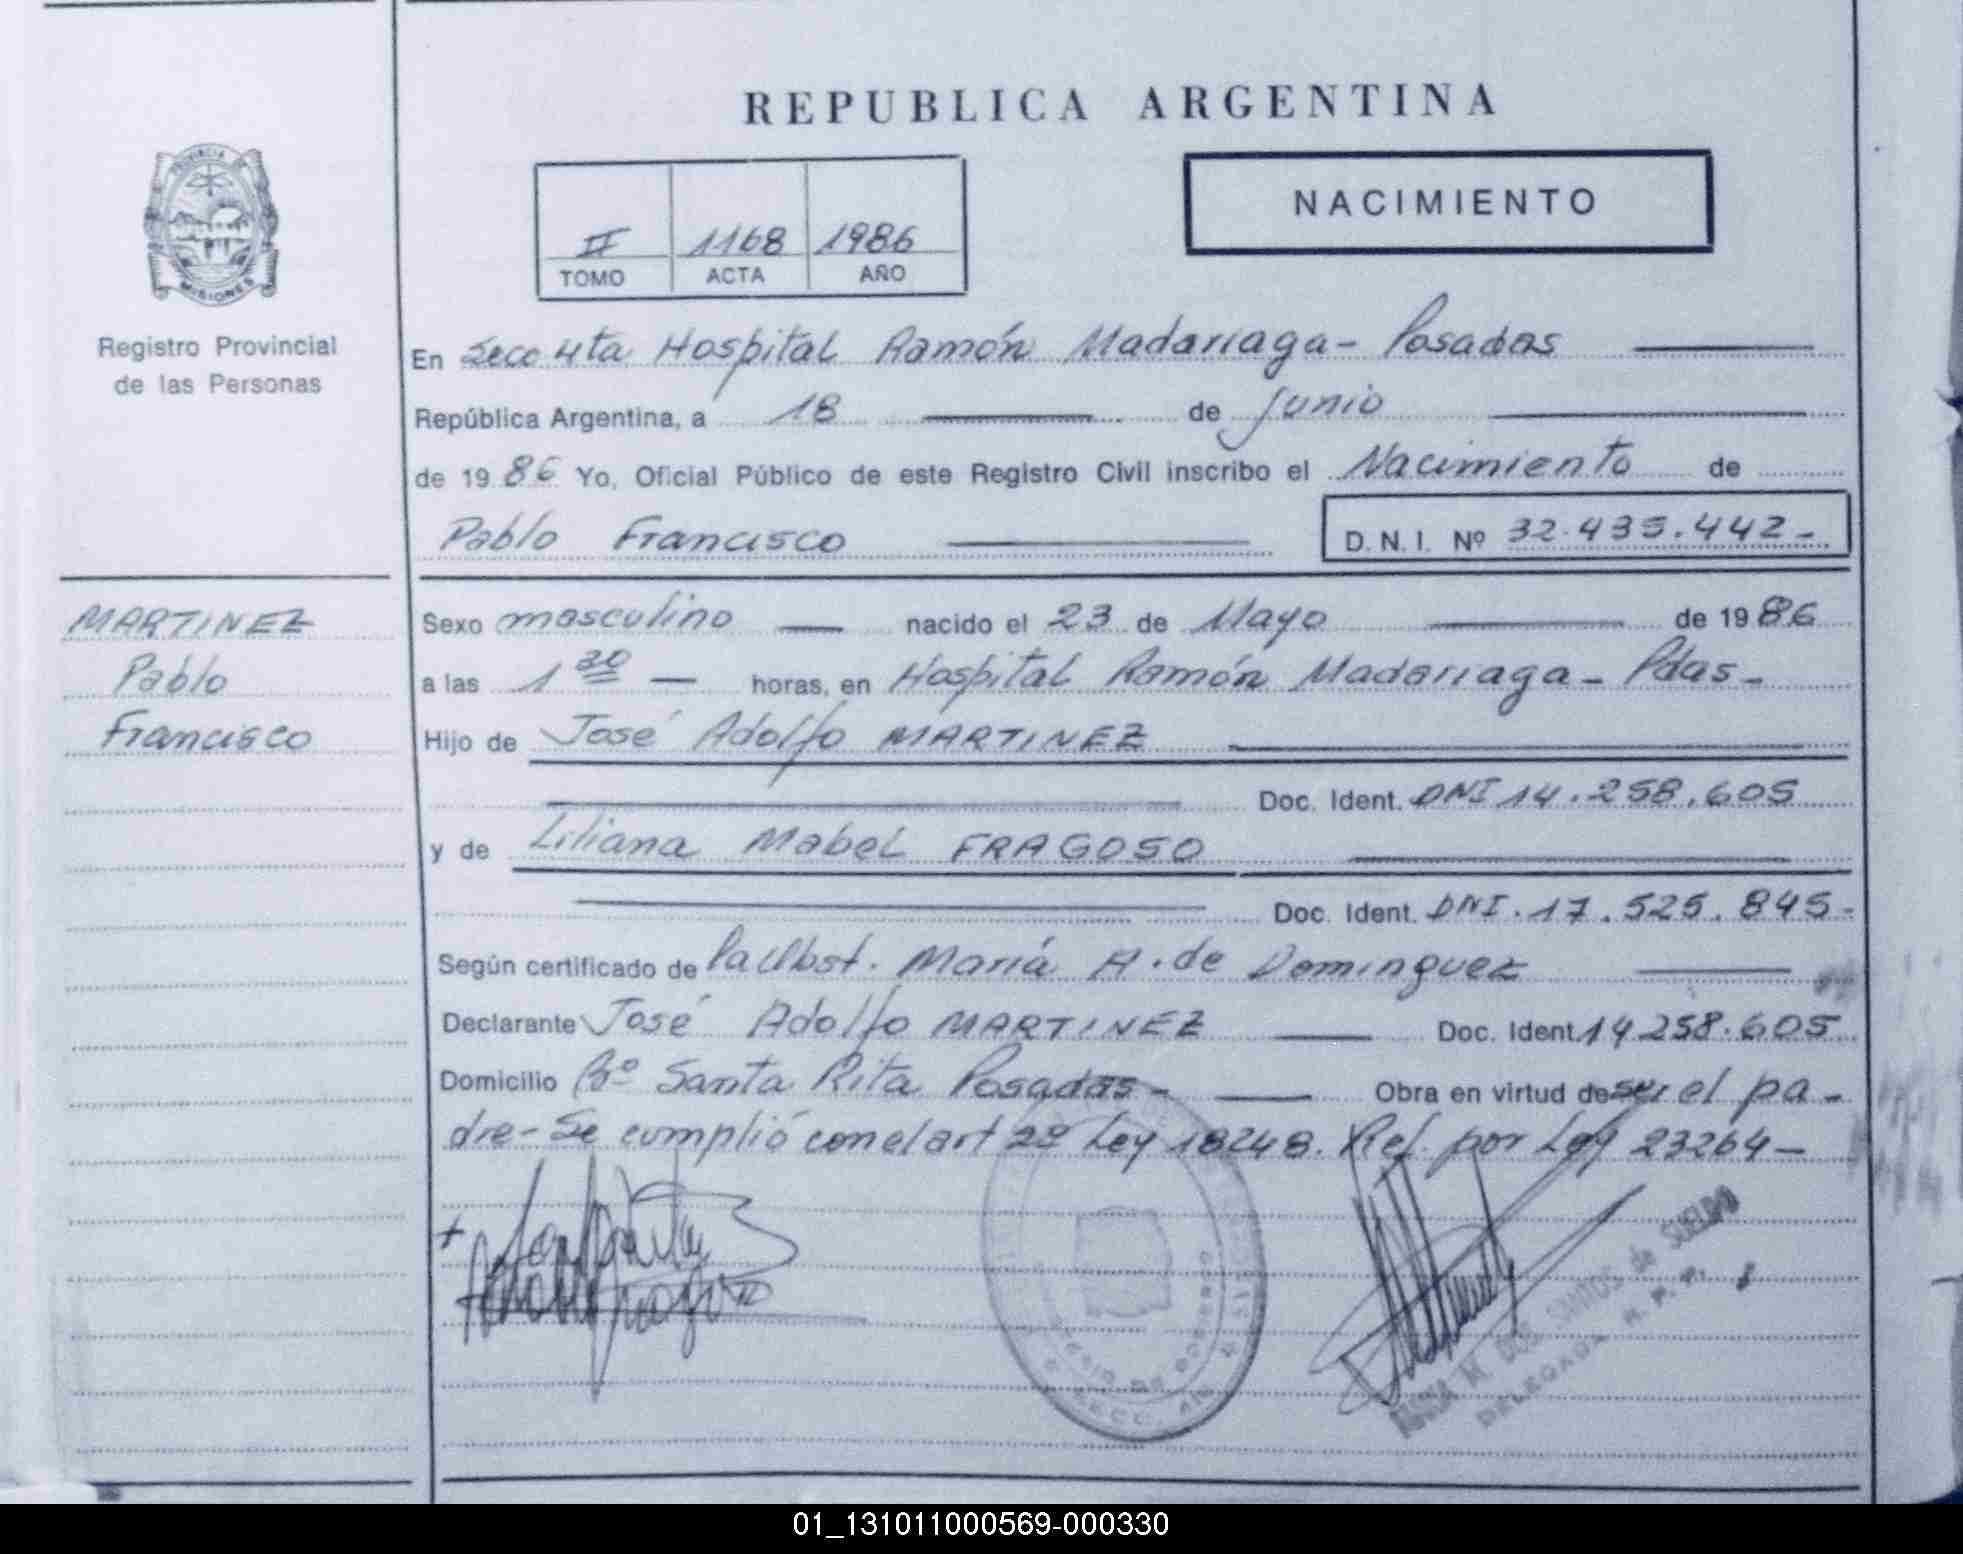 REPUBLICA ARGENTINA
NACIMIENTO
II 1168 1986
TOMO ACTA AÑO
PROVINCIA DE
MISIONES
Registro Provincial
de las Personas
En Secc 4ta Hospital Ramón Madariaga - Posadas
República Argentina, a 18 de Junio
de 1986 Yo, Oficial Público de este Registro Civil inscribo el Nacimiento de
Pablo Francisco D.N.I. Nº 32.435.442-
MARTINEZ
Pablo
Francisco
Sexo masculino nacido el 23 de Mayo de 1986
a las 1 30 horas, en Hospital Ramón Madariaga - Pdas -
Hijo de José Adolfo MARTINEZ
Doc. Ident. DNI 14.258.605
y de Liliana Mabel FRAGOSO
Doc. Ident. DNI. 17.525.845-
Según certificado de María A. de Dominguez
Declarante José Adolfo MARTINEZ Doc. Ident. 14.258.605
Domicilio Bº Santa Rita Posadas - Obra en virtud de ser el pa-
dre - Se cumplió con el art 2º Ley 18248. Ref. por Ley 23264 -
DOS SANTOS de SUELDO
DELEGADA R. P. P.
01_131011000569-000330